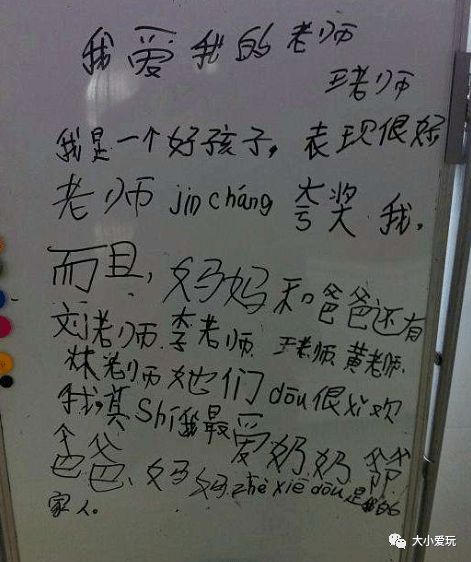 我爱我的老师
王老师
我是一个好孩子，表现很好
老师jin cháng夸奖我，
而且，妈妈和爸爸还有
刘老师.李老师.王老师.黄老师.
林老师她们dōu很xi欢
我，其Shí我最爱奶奶爷爷
爸爸、妈妈zhè xiē dōu是我的
家人。
大小爱玩